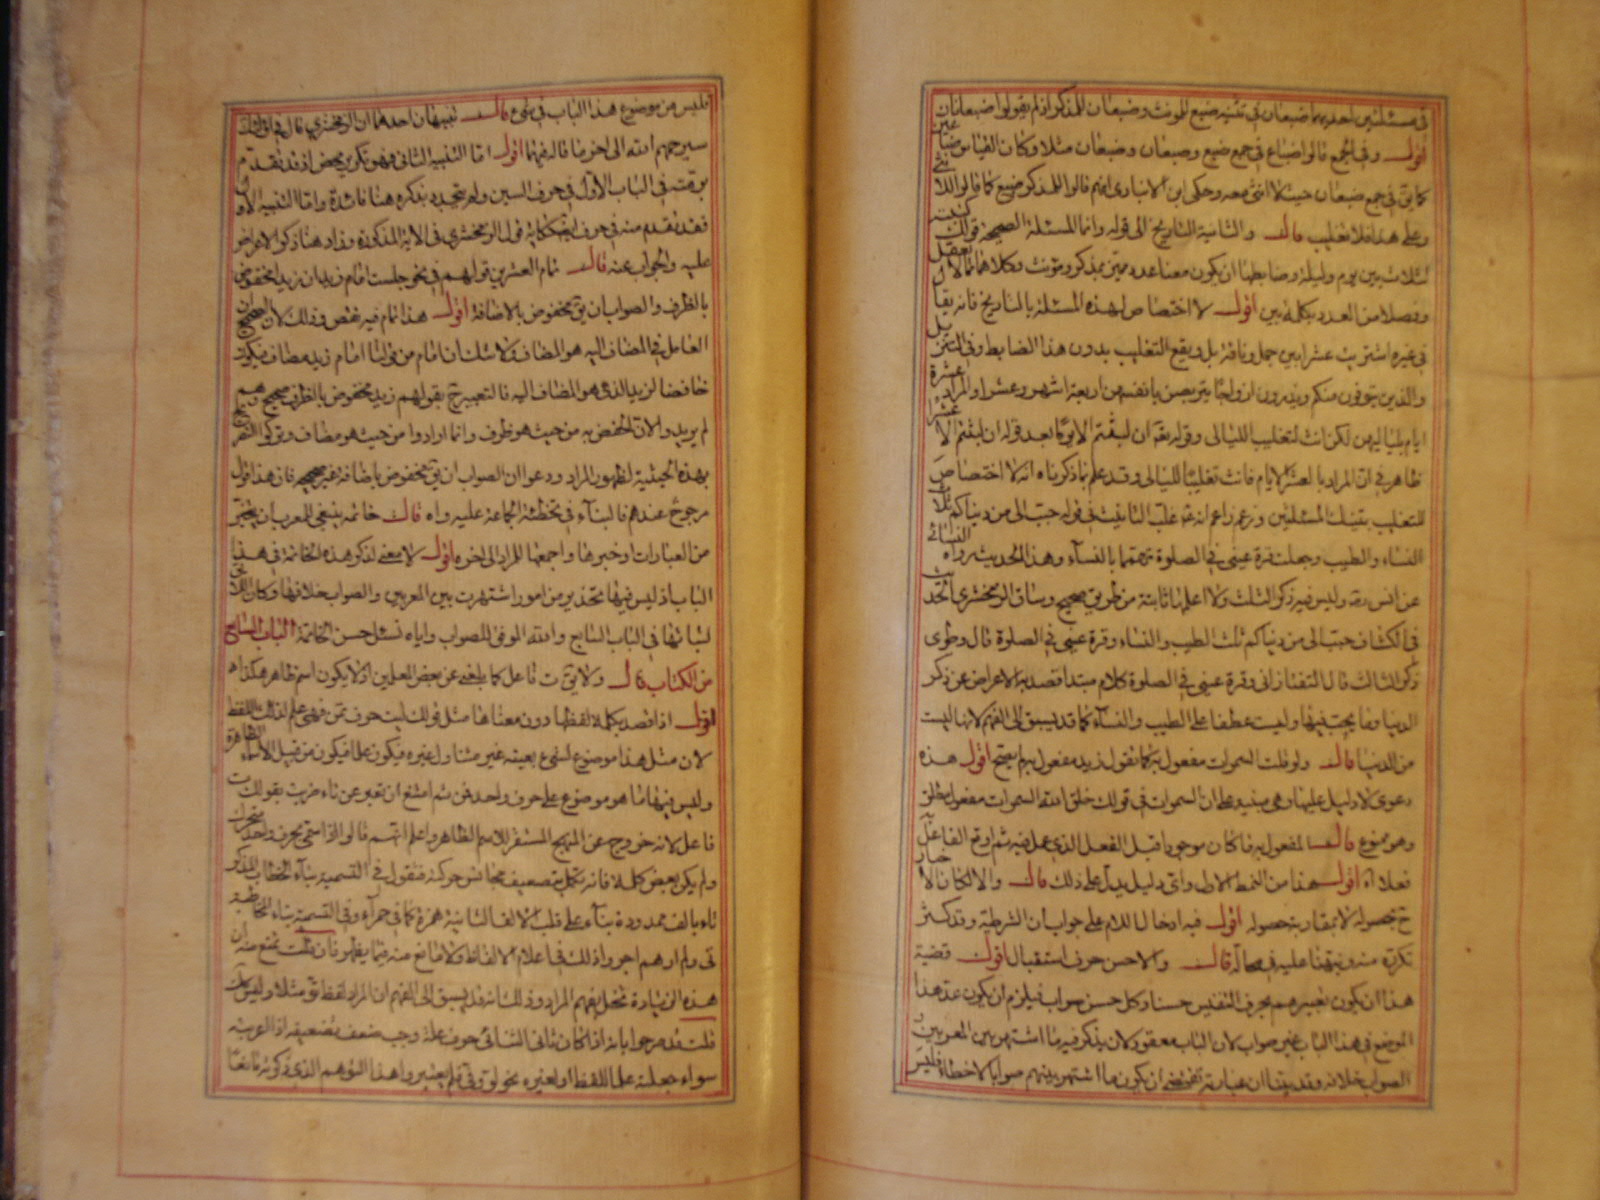 في مسئلتين احديهما ضبعان في تثنية ضبع للمونث وضبعان للمذكر اذ لم يقولوا ضبعانان
اقول وفي الجمع قالوا ضباع في جمع ضبع وضبعان وضبعان مثلا وكان القياس ضباعين
في جمع ضبعان حيث لا انثى معه وحكى ابن الانبارى انهم قالوا للمذكر ضبع كما قالوا للانثى
وعلى هذا فلا تغليب قال والثانية التاريخ الى قوله وانما المسئلة الصحيحة قولك كتبته
لثلاث بين يوم وليلة وضابطها ان يكون معنا عدد مميز بمذكر ومونث وكلاهما مما لا يعقل
وفصلا من العدد بكلمة بين اقول لا اختصاص لهذه المسئلة بالتاريخ فانه يقال
في غيره اشتريت عشرا بين جمل وناقة بل ويقع التغليب بدون هذا الضابط وفي التنزيل
والذين يتوفون منكم ويذرون ازواجا يتربصن بانفسهن اربعة اشهر وعشرا والمراد عشرة
ايام بلياليهن لكن انث لتغليب الليالى وقوله تعم ان لبثتم الا يوما بعد قوله ان لبثتم الا عشرا
ظاهر في ان المراد بالعشر الايام فانث تغليبا لليالى وقد علم بما ذكرناه انه لا اختصاص
للتغليب بتينك المسئلتين وزعم زاعم انه غلب التانيث في قوله حبب الى من دنياكم ثلاث
النساء والطيب وجعلت قرة عينى في الصلوة تهمما بالنساء وهذا الحديث رواه النسائى
عن انس رضه وليس فيه ذكر الثلث ولا اعلمها ثابتة من طريق صحيح وساق الزمخشرى الحديث
في الكشاف حبب الى من دنياكم ثلث الطيب والنساء وقرة عينى في الصلوة قال وطوى
ذكر الثالث قال التفتازانى وقرة عينى في الصلوة كلام مبتدا قصد به الاعراض عن ذكر
الدنيا وما يحبب فيها وليست عطفا على الطيب والنساء كما قد يسبق الى الفهم لانها ليست
من الدنيا قال ولو قلت السموات مفعول به كما تقول زيد مفعول به لم يصح اقول هذه
دعوى لا دليل عليها وهى مبنية على ان السموات في قولك خلق الله السموات مفعول مطلق
وهو ممنوع قال المفعول به ما كان موجودا قبل الفعل الذى عمل فيه ثم اوقع الفاعل
فعلا اه اقول هذا من النمط الاول واى دليل يدل على ذلك قال والا لكان الاخبار
ح بحصوله لا بمقاربة حصوله اقول فيه ادخال اللام على جواب ان الشرطية وقد كثر
تكرره منه ونبهنا عليه في محاله قال والاحسن حرف استقبال اقول قضية
هذا ان يكون تعبيرهم بحرف التنفيس حسنا وكل حسن صواب فيلزم ان يكون عد هذا
الموضع في هذا الباب غير صواب لان الباب معقود لان يذكر فيه ما اشتهر بين المعربين
الصواب خلافه وقد بينا ان عبارته تقتضى ان يكون ما اشتهر بينهم صوابا لا خطاء فليس
فليس من موضوع هذا الباب في شيء قال تنبيهان احدهما ان الزمخشرى قال في اولئك
سيرحمهم الله الى اخر ما قاله فيهما اقول اما التنبيه الثانى فهو تكرير محض اذ قد تقدم
برمته في الباب الاول في حرف السين ولم يتجدد بذكره هنا فائدة واما التنبيه الاول
فقد تقدم منه في حرف حكاية قول الزمخشرى في الاية المذكورة وزاد هنا ذكر الاعراض
عليه والجواب عنه قال تمام العشرين قولهم في نحو جلست امام زيد ان زيدا مخفوض
بالظرف والصواب ان يق مخفوض بالاضافة اقول هذا تمام فيه نقص وذلك لان الصحيح ان
العامل في المضاف اليه هو المضاف ولا شك ان امام من قولنا امام زيد مضاف فيكون
خافضا لزيد الذى هو المضاف اليه فالتعبير ح بقولهم زيد مخفوض بالظرف صحيح وهم
لم يريدوا ان الخفض به من حيث هو ظرف وانما ارادوا من حيث هو مضاف وتركوا التصريح
بهذه الحيثية لظهور المراد ودعوا ان الصواب ان يق مخفوض باضافة غير صحيحه فان هذا قول
مرجوح عندهم فالبناء في تخطئة الجماعة عليه واه قال خاتمه ينبغى للمعرب ان يتخير
من العبارات وخيرها واجمعها للمراد الى اخره اقول لا معنى لذكر هذه الخاتمة في هذا
الباب اذ ليس فيها تحذير من امور اشتهرت بين المعربين والصواب خلافها وكان اللائق
اثباتها في الباب السابع والله الموفق للصواب واياه نسئل حسن الخاتمة الباب السابع
من الكتاب قال ولا يق ت فاعل كما بلغنى عن بعض المعلمين اذ لا يكون اسم ظاهر هكذا اه
اقول اذا قصد بكلمة لفظها دون معناها مثل قولك ليت حرف تمن فهى علم لذلك اللفظ
لان مثل هذا موضوع لشيء بعينه غير متناول غيره فيكون علما فيكون من قبيل الاسماء الظاهرة
وليس فيها ما هو موضوع على حرف واحد فمن ثم امتنع ان تعبر عن تاء ضربت بقولك ت
فاعل لانه خروج عن المنهج المستقر للاسم الظاهر واعلم انهم قالوا اذا سمى بحرف واحد متحرك
ولم يكن بعض كلمة فانه يكمل بتضعيف مجانس حركته فتقول في التسمية بتاء الخطاب للمذكر
تاء بالف ممدودة بناء على قلب الالف الثانية همزة كما في حمراء وفي التسمية بتاء المخاطبة
تى ولم ارهم اجروا ذلك في اعلام الالفاظ ولا مانع منه فيما يظهر فان قلت يمنع منه ان
هذه الزيادة تخل بفهم المراد وذلك لانه قد يسبق الى الفهم ان المراد لفظ تو مثلا وليس كك
قلت قد صرحوا بانه اذا كان ثانى الثنائى حرف علة وجب ضعف تضعيفه اذا اعربته
سواء جعلته علما للفظ او لغيره نحو لو وفى فلم يعتبروا هذا التوهم الذى ذكرته مانعا